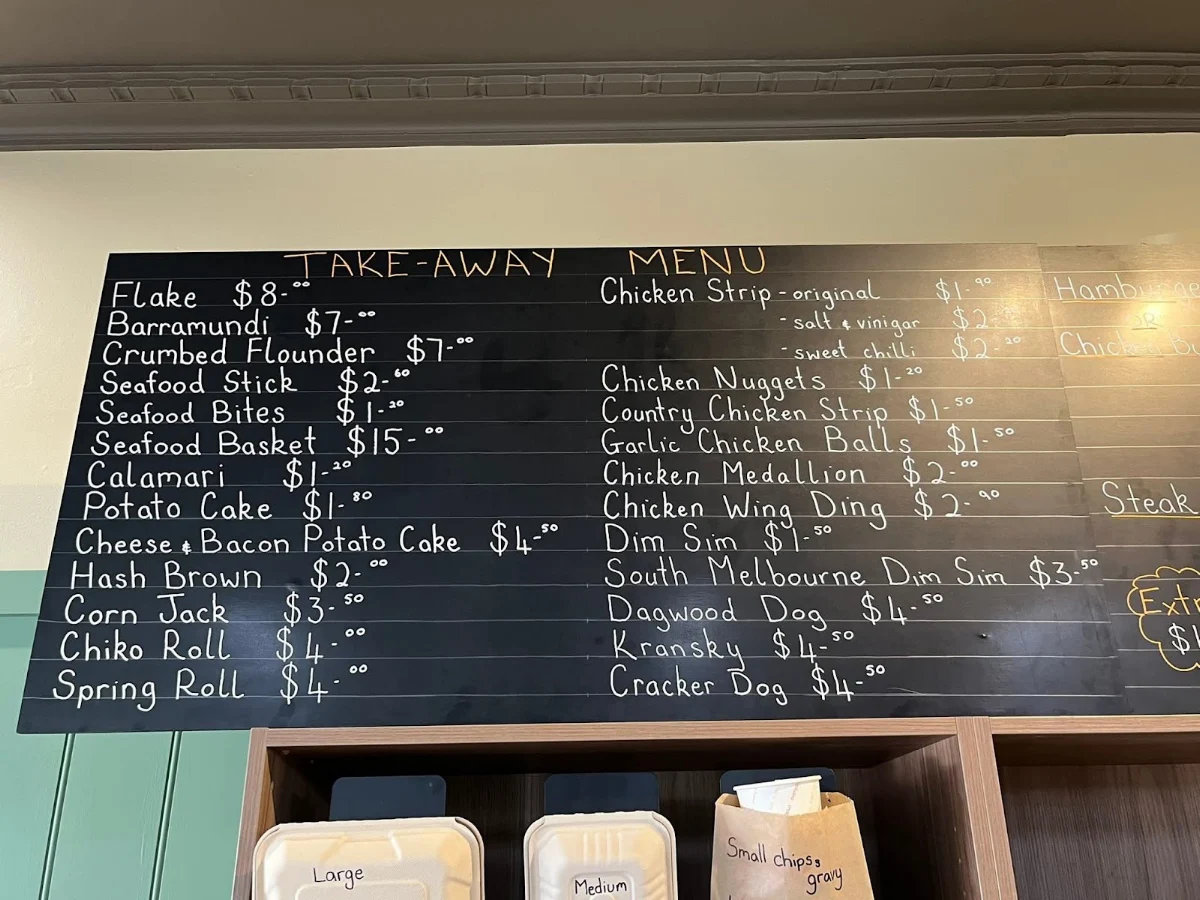 TAKE-AWAY MENU
Flake $8-00
Barramundi $7-00
Crumbed Flounder $7-00
Seafood Stick $2-60
Seafood Bites $1-20
Seafood Basket $15-00
Calamari $1-20
Potato Cake $1-80
Cheese & Bacon Potato Cake $4-50
Hash Brown $2-00
Corn Jack $3-50
Chiko Roll $4-00
Spring Roll $4-00
Chicken Strip - original $1-90
- salt & vinigar $2-
- sweet chilli $2-20
Chicken Nuggets $1-20
Country Chicken Strip $1-50
Garlic Chicken Balls $1-50
Chicken Medallion $2-00
Chicken Wing Ding $2-90
Dim Sim $1-50
South Melbourne Dim Sim $3-50
Dagwood Dog $4-50
Kransky $4-50
Cracker Dog $4-50
Hamburge
OR
Chicken Bu
Steak
Extr
$1
Large
Medium
Small chips,
gravy